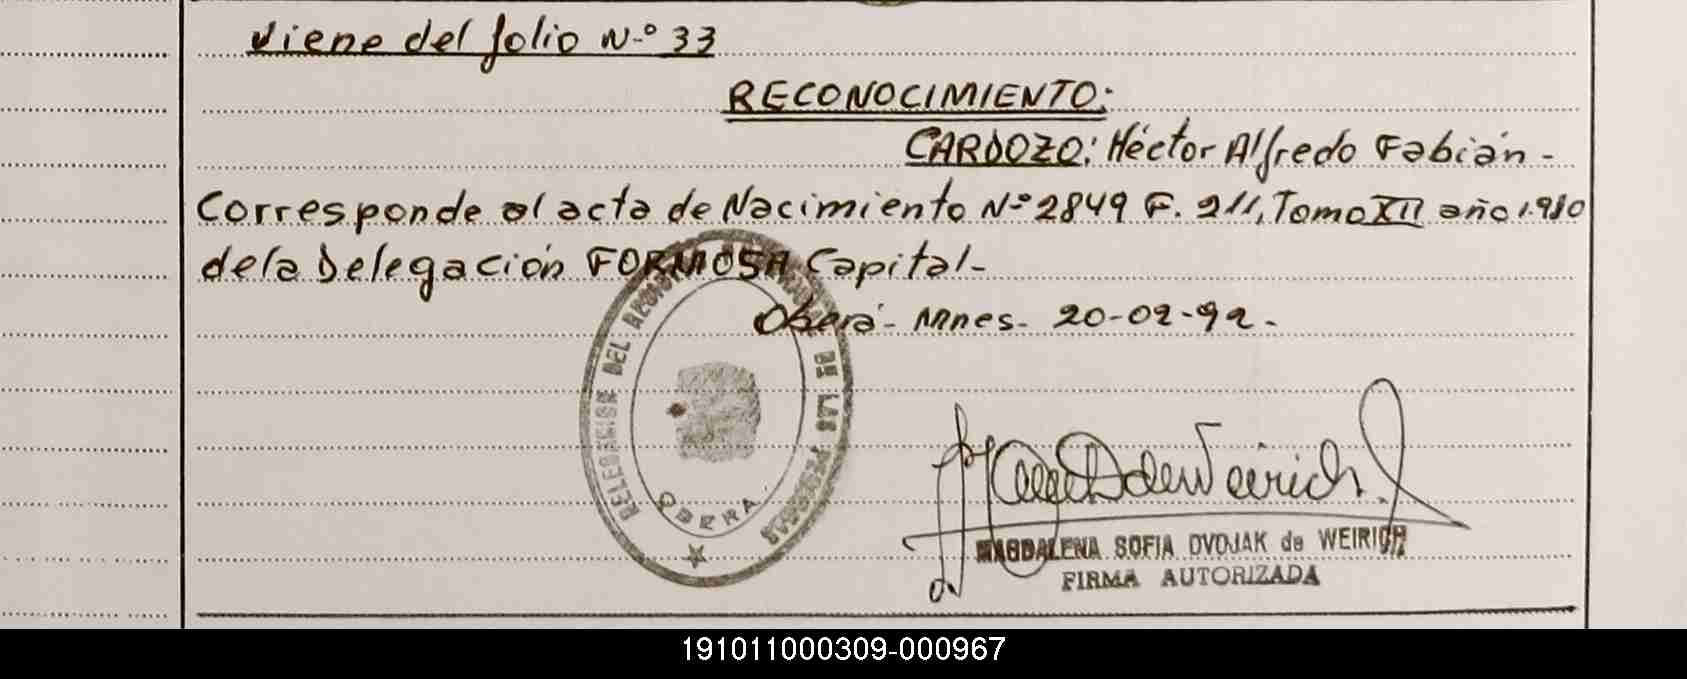 Viene del folio N-º 33
RECONOCIMIENTO:
CARDOZO: Héctor Alfredo Fabián -
Corresponde al acta de Nacimiento Nº 2849 F. 211, Tomo XII año 1.980
de la Delegación FORMOSA Capital-
Oberá- Mnes- 20-02-92-
DELEGACION DEL REGISTRO DE LAS PERSONAS
OBERA
MAGDALENA SOFIA DVOJAK de WEIRICH
FIRMA AUTORIZADA
191011000309-000967